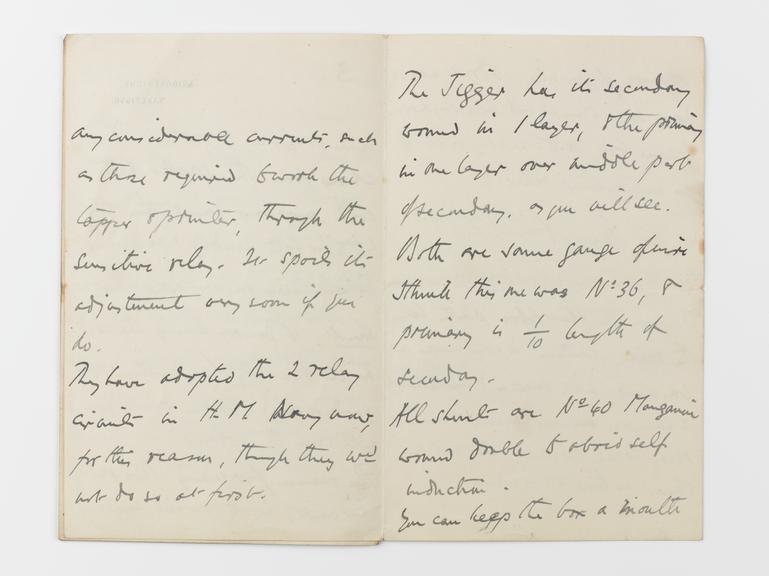 any considerable currents, such
as those required to work the
tapper & printer, through the
sensitive relay. It spoils its
adjustment very soon if you
do.
They have adopted the 2 relay
circuits in H.M. Navy now,
for this reason, though they wd
not do so at first.
The Jigger has its secondary
wound in 1 layer, & the primary
in one layer over middle part
of secondary, as you will see.
Both are same gauge of wire
I think this one was No 36, &
primary is 1/10 length of
secondary.
All shunts are No 40 Manganin
wound double to avoid self
induction.
You can keep the box a month